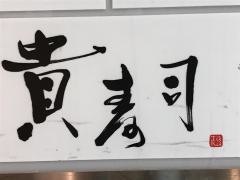 貴寿司